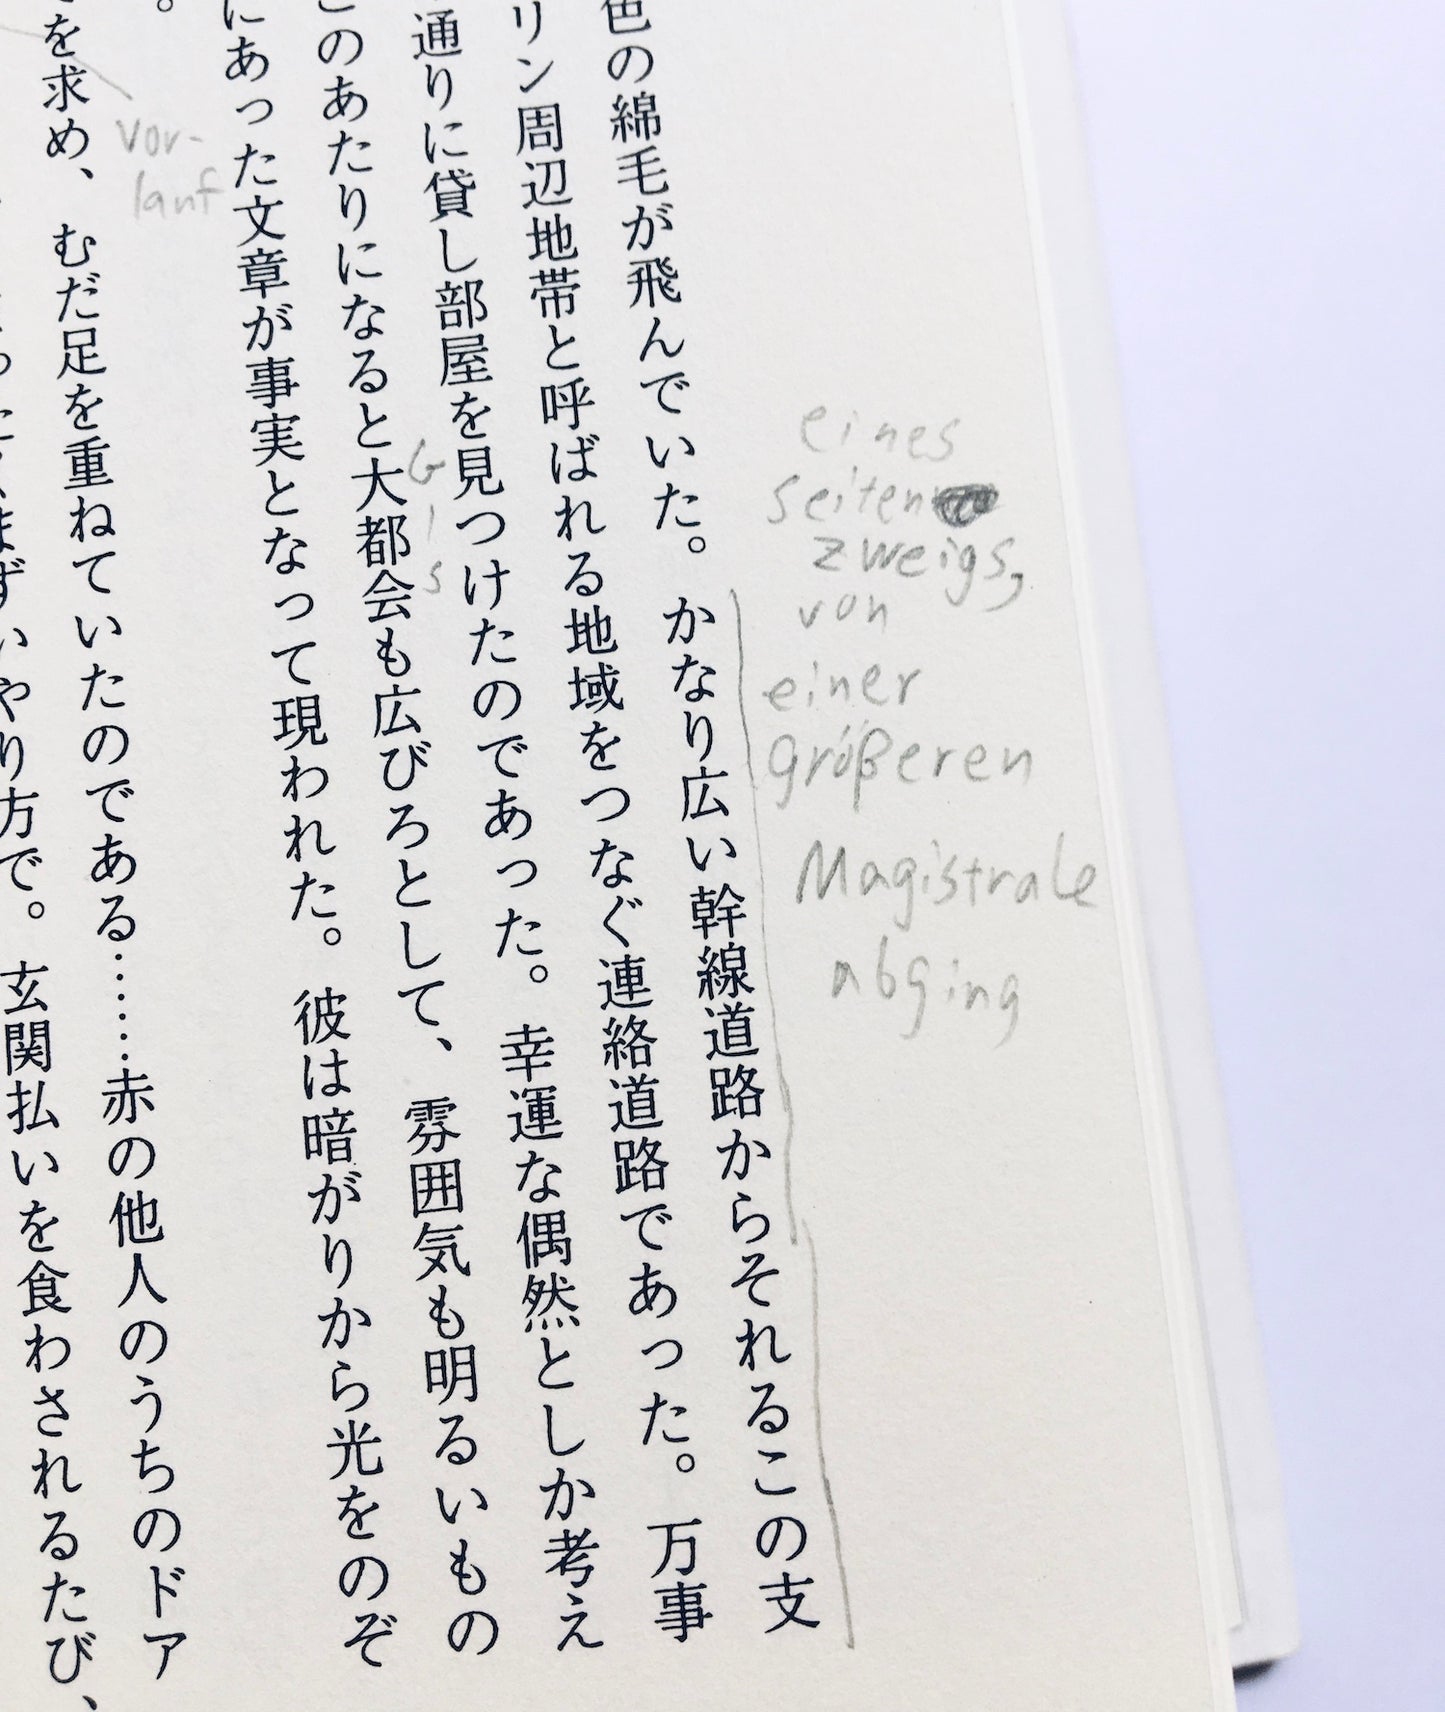 eines
seiten
zweigs,
von
einer
größeren
Magistrale
abging
色の綿毛が飛んでいた。かなり広い幹線道路からそれるこの支
リン周辺地帯と呼ばれる地域をつなぐ連絡道路であった。万事
通りに貸し部屋を見つけたのであった。幸運な偶然としか考え
このあたりになると大都会も広びろとして、雰囲気も明るいもの
にあった文章が事実となって現われた。彼は暗がりから光をのぞ
。
vor-
lauf
を求め、むだ足を重ねていたのである……赤の他人のうちのドア
まずいやり方で。玄関払いを食わされるたび、